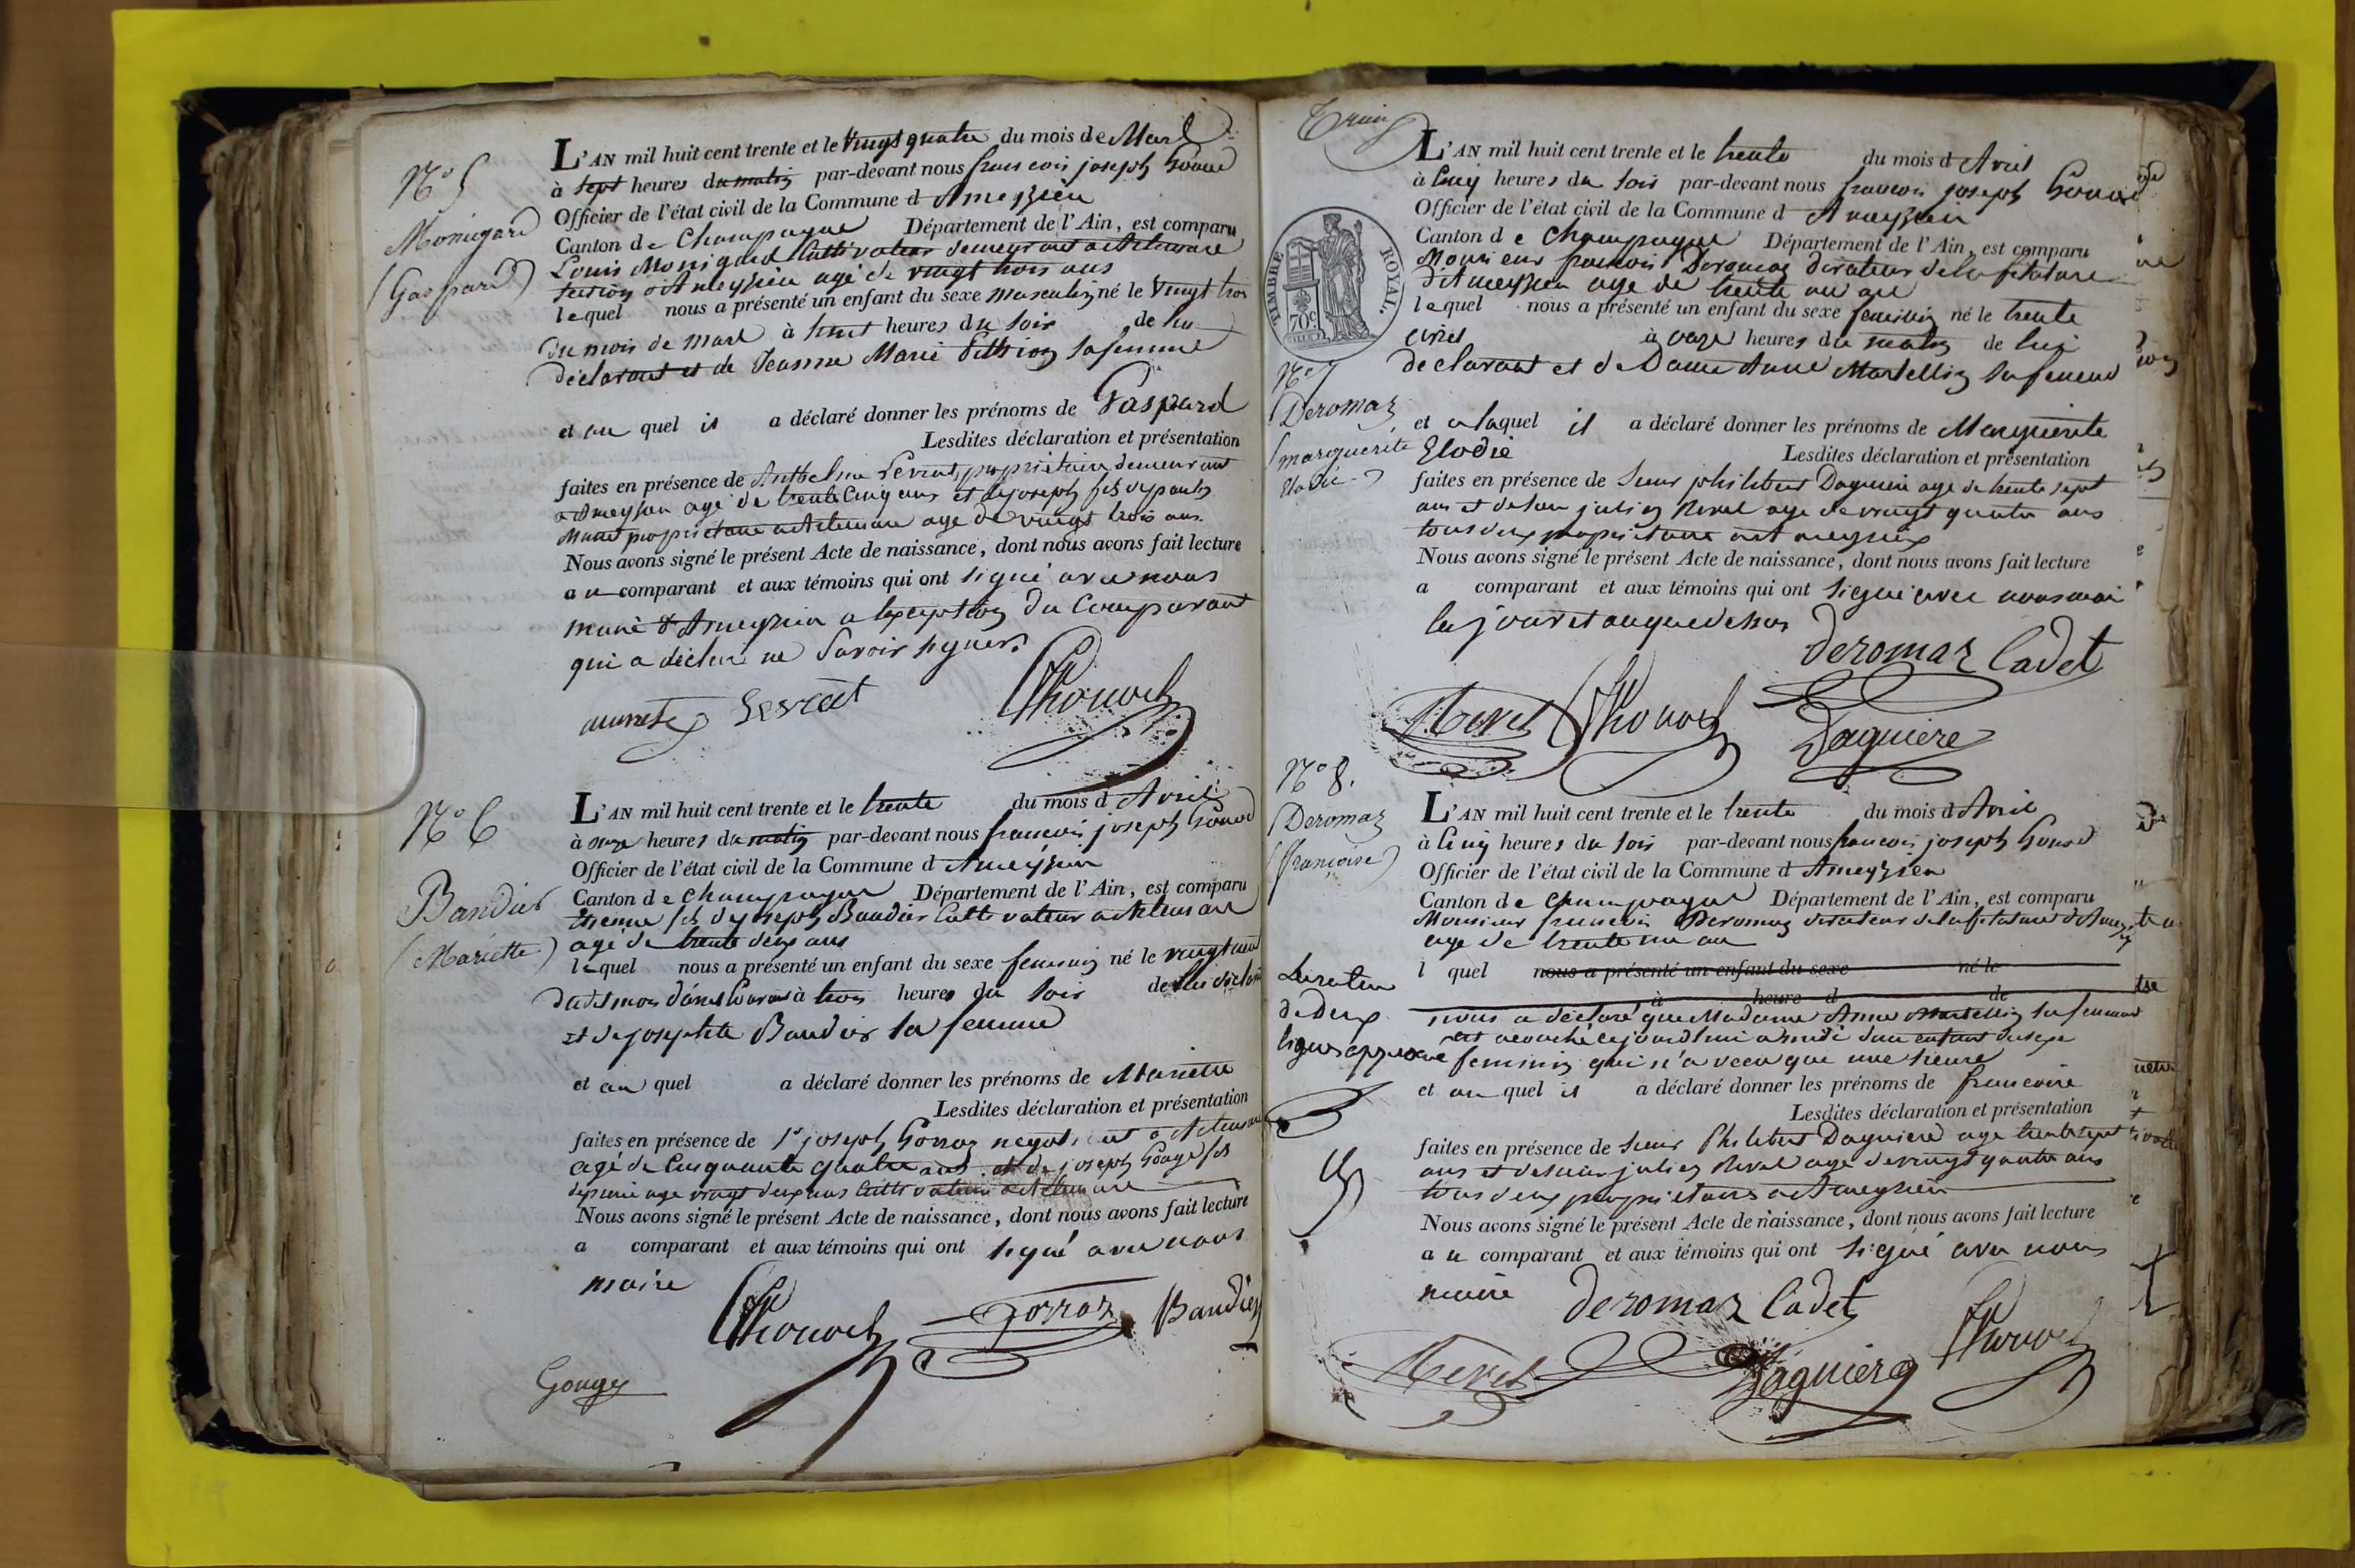 N° 5
Monigard
(Gaspard)
L'AN mil huit cent trente et le vingt quatre du mois de Mars
à sept heures du matin par-devant nous francois joseph
Officier de l'état civil de la Commune d Ameyzieu
Canton de Champagne Département de l'Ain, est comparu
Louis Monigard Cultivateur demeurant
section d'Ameyzieu agé de vingt trois ans
lequel nous a présenté un enfant du sexe masculin né le vingt trois
du mois de mars à huit heures du soir de lui
déclarant et de Jeanne Marie sa femme
et au quel il a déclaré donner les prénoms de Gaspard
Lesdites déclaration et présentation
faites en présence de Anthelme propriétaire demeurant
a Ameyzieu agé de trente cinq ans et de joseph fils de
propriétaire agé de vingt trois ans.
Nous avons signé le présent Acte de naissance, dont nous avons fait lecture
au comparant et aux témoins qui ont signé avec nous
maire d'Ameyzieu a lexception du Comparant
qui a déclaré ne savoir signer.
N° 6
Baudier
(Mariette)
L'AN mil huit cent trente et le trente du mois d Avril
à onze heures du matin par-devant nous francois joseph
Officier de l'état civil de la Commune d Ameyzieu
Canton de Champagne Département de l'Ain, est comparu
Etienne fils de joseph Baudier Cultivateur
agé de trente deux ans
lequel nous a présenté un enfant du sexe feminin né le vingt neuf
du dit mois d'avril Courant à trois heures du soir de lui
Et de josephte Baudier sa femme
et au quel a déclaré donner les prénoms de Mariette
Lesdites déclaration et présentation
faites en présence de Sr joseph Gorraz negotiant a
agé de Cinquante quatre ans et de joseph Gougy fils
agé vingt deux ans Cultivateur
Nous avons signé le présent Acte de naissance, dont nous avons fait lecture
a comparant et aux témoins qui ont signé avec nous
maire
Gorraz Baudier
Gougy
TIMBRE ROYAL.
70c
N° 7
Deromaz
(marguerite
Elodie)
L'AN mil huit cent trente et le trente du mois d Avril
à Cinq heures du soir par-devant nous francois joseph
Officier de l'état civil de la Commune d Ameyzieu
Canton de Champagne Département de l'Ain, est comparu
Monsieur francois Deromaz directeur de la filature
d'Ameyzieu age de trente un ans
lequel nous a présenté un enfant du sexe feminin né le trente
avril à onze heures du matin de lui
déclarant et de Dame Anne Martellin sa femme
et a laquel il a déclaré donner les prénoms de Marguerite
Elodie Lesdites déclaration et présentation
faites en présence de Sieur philibert Daguiere age de trente sept
ans et de sieur julien Nevel age de vingt quatre ans
tous deux propriétaires a Ameyzieu
Nous avons signé le présent Acte de naissance, dont nous avons fait lecture
a comparant et aux témoins qui ont signé avec nous maire
les jour et an que dessus
deromaz Cadet
Daguiere
N° 8.
(Deromaz
(françoise)
L'AN mil huit cent trente et le trente du mois d Avril
à Cinq heures du soir par-devant nous francois joseph
Officier de l'état civil de la Commune d Ameyzieu
Canton de Champagne Département de l'Ain, est comparu
Monsieur francois Deromaz directeur de la filature d'Ameyzieu
age de trente un an
l quel nous a présenté un enfant du sexe né le
à heure d de
La rature
de deux
lignes approuvé
nous a déclaré que Madame Anne Martellin sa femme
est acouché cejourdhui a midi d'un enfant du sexe
feminin qui n'a vecu que une heure
et au quel il a déclaré donner les prénoms de francoise
Lesdites déclaration et présentation
faites en présence de Sieur Philibert Daguiere age trente sept
ans et de sieur julien Nevel age de vingt quatre ans
tous deux propriétaires a Ameyzieu
Nous avons signé le présent Acte de naissance, dont nous avons fait lecture
au comparant et aux témoins qui ont signé avec nous
maire
deromaz Cadet
Daguiere